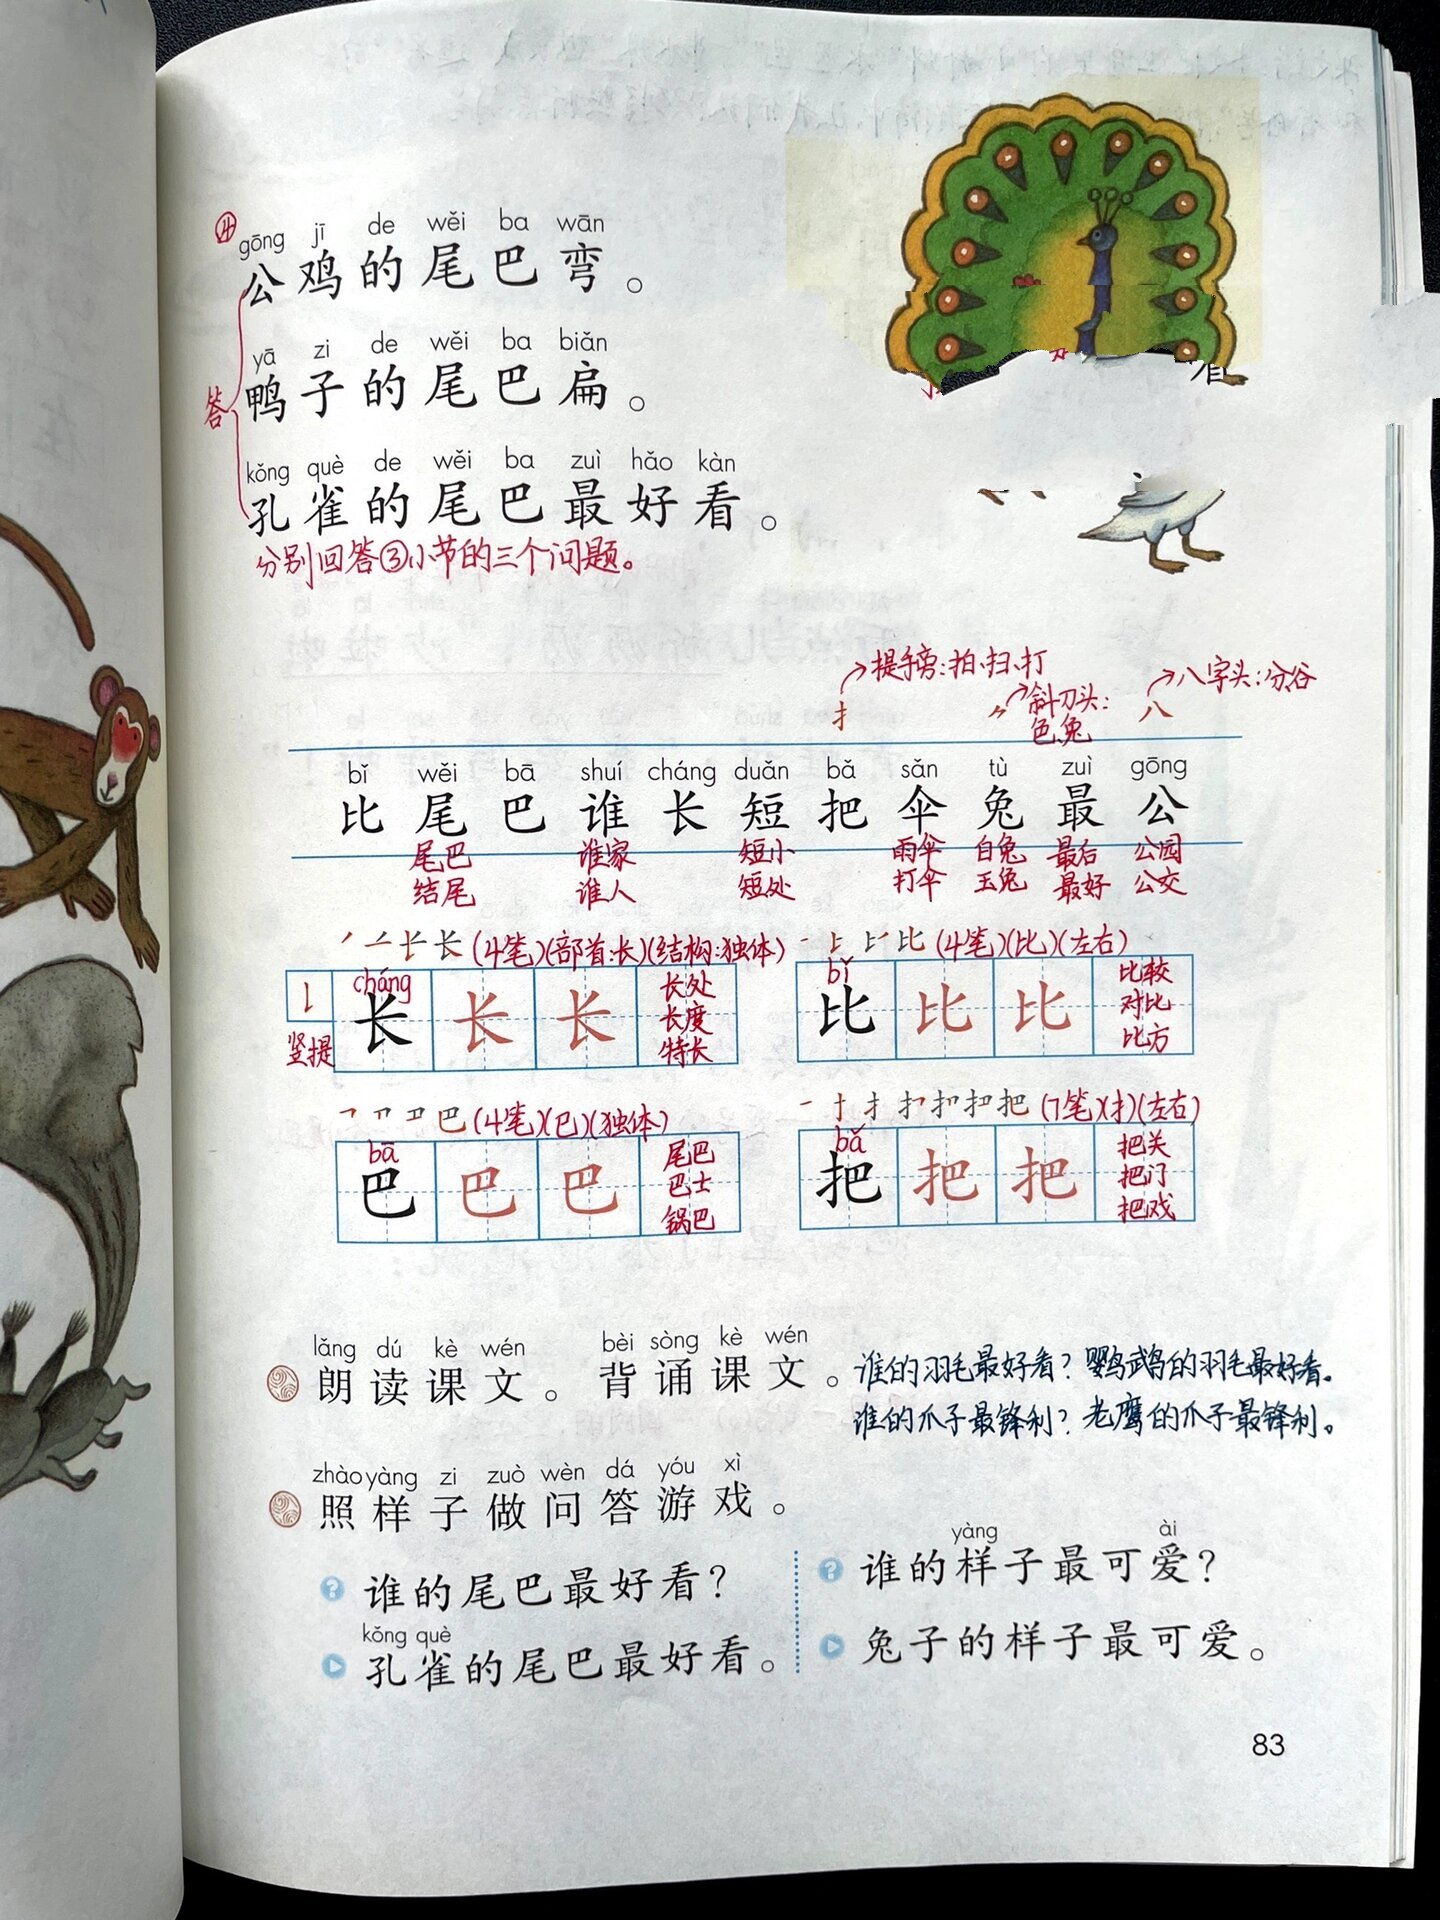 ④
gōng jī de wěi ba wān
公鸡的尾巴弯。
yā zi de wěi ba biǎn
鸭子的尾巴扁。
答
kǒng què de wěi ba zuì hǎo kàn
孔雀的尾巴最好看。
分别回答③小节的三个问题。
提手旁:拍、扫、打
扌
斜刀头:
色、兔
八字头:分、谷
八
bǐ wěi bā shuí cháng duǎn bǎ sǎn tù zuì gōng
比尾巴谁长短把伞兔最公
尾巴 谁家 短小 雨伞 白兔 最后 公园
结尾 谁人 短处 打伞 玉兔 最好 公交
长 (4笔)(部首:长)(结构:独体)
cháng
长 长 长
长处
长度
特长
竖提
比 (4笔)(比)(左右)
bǐ
比 比 比
比较
对比
比方
巴 (4笔)(巴)(独体)
bā
巴 巴 巴
尾巴
巴士
锅巴
把 (7笔)(扌)(左右)
bǎ
把 把 把
把关
把门
把戏
lǎng dú kè wén bèi sòng kè wén
朗读课文。背诵课文。
谁的羽毛最好看?鹦鹉的羽毛最好看。
谁的爪子最锋利?老鹰的爪子最锋利。
zhào yàng zi zuò wèn dá yóu xì
照样子做问答游戏。
谁的尾巴最好看?
kǒng què
孔雀的尾巴最好看。
yàng ài
谁的样子最可爱?
兔子的样子最可爱。
83